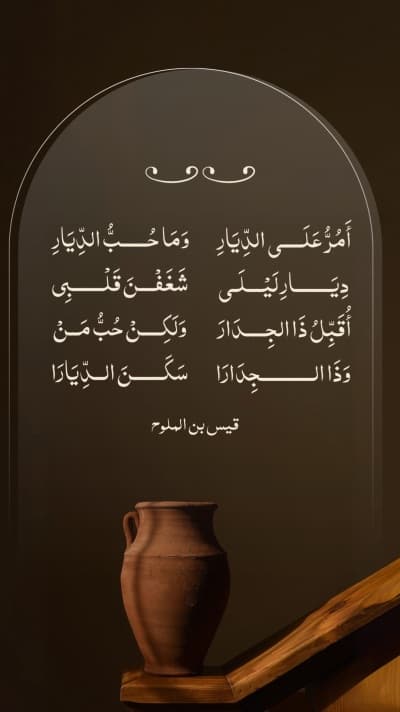 أَمُرُّ عَلَى الدِّيَارِ وَمَا حُبُّ الدِّيَارِ
دِيَارِ لَيْلَى شَغَفْنَ قَلْبِي
أُقَبِّلُ ذَا الجِدَارَ وَلَكِنْ حُبُّ مَنْ
وَذَا الجِدَارَا سَكَنَ الدِّيَارَا
قيس بن الملوح